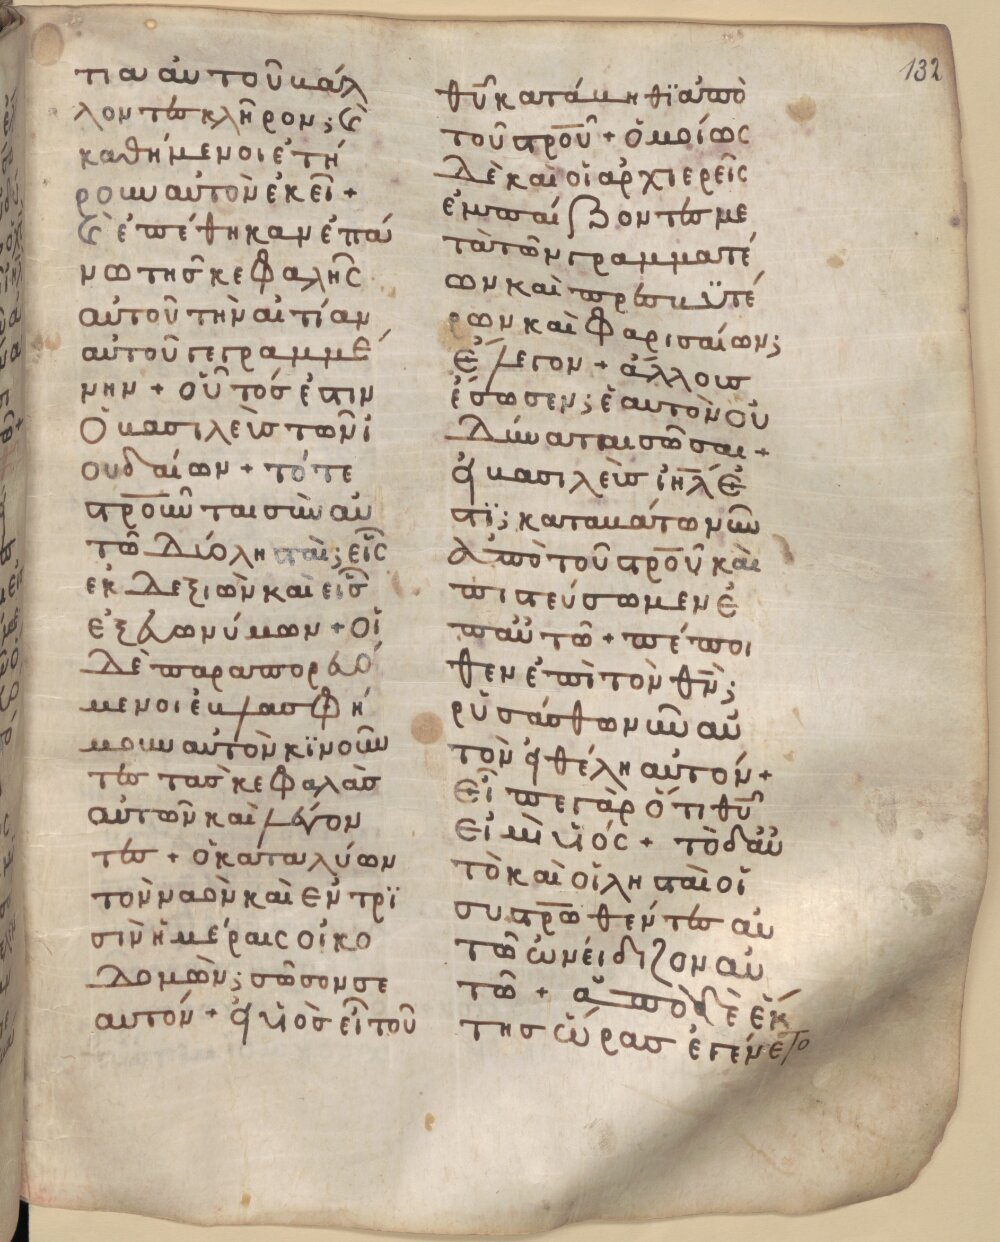 132
τια αὐτοῦ βάλ
λοντὲς κλῆρον; καὶ
καθήμενοι ἐτή
ρουν αὐτὸν ἐκεῖ +
καὶ ἐπέθηκαν ἐπά
νω τῆς κεφαλῆς
αὐτοῦ τὴν αἰτίαν
αὐτοῦ γεγραμμέ
νην + οὗτός ἐστιν
ὁ βασιλεὺς τῶν ἰ
ουδαίων + τότε
στ̅ροῦνται σὺν αὐ
τῶ δύο λησταὶ; εἷς
ἐκ δεξιῶν καὶ εἷς
ἐξ εὐωνύμων + οἱ
δὲ παραπορευό
μενοι ἐβλασφή
μουν αὐτὸν κινοῦν
τὲς τὰς κεφαλὰς
αὐτῶν καὶ λέγον
τὲς + ὁ καταλύων
τὸν ναὸν καὶ ἐν τρϊ
σὶν ἡμέραις οἰκο
δομῶν; σῶσον σε
αυτόν + εἰ υἱὸς εἶ τοῦ
θ̅υ̅ κατάβηθϊ ἀπὸ
τοῦ στ̅ρο̅ῦ + ὁμοίως
δὲ καὶ οἱ ἀρχιερεῖς
ἐμπαίζοντὲς με
τὰ τῶν γραμματέ
ων καὶ πρεσβϋτέ
ρων καὶ φαρισαίων;
ἔλεγον + ἄλλους
ἔσωσεν; ἑαυτὸν οὐ
δύναται σῶσαι +
εἰ βασιλεὺς ἰη̅λ ἐ
στϊ; καταβάτω νῦν
ἀπὸ τοῦ στ̅ρο̅ῦ καὶ
πιστεύσωμεν ἐ
π αὐτῶ + πέποι
θεν ἐπὶ τὸν θ̅ν̅;
ῥυσάσθω νῦν αὐ
τὸν εἰ θέλη αὐτόν +
εἶπε γὰρ ὅτι θ̅υ̅
εἰμὶ υἱός + τὸ δ αὐ
τὸ καὶ οἱ λησταὶ οἱ
συστ̅ρωθέντὲς αὐ
τῶ ὠνείδιζον αὐ
τῶ + ἀπὸ δὲ ἕκ
της ὥρας ἐγένετο